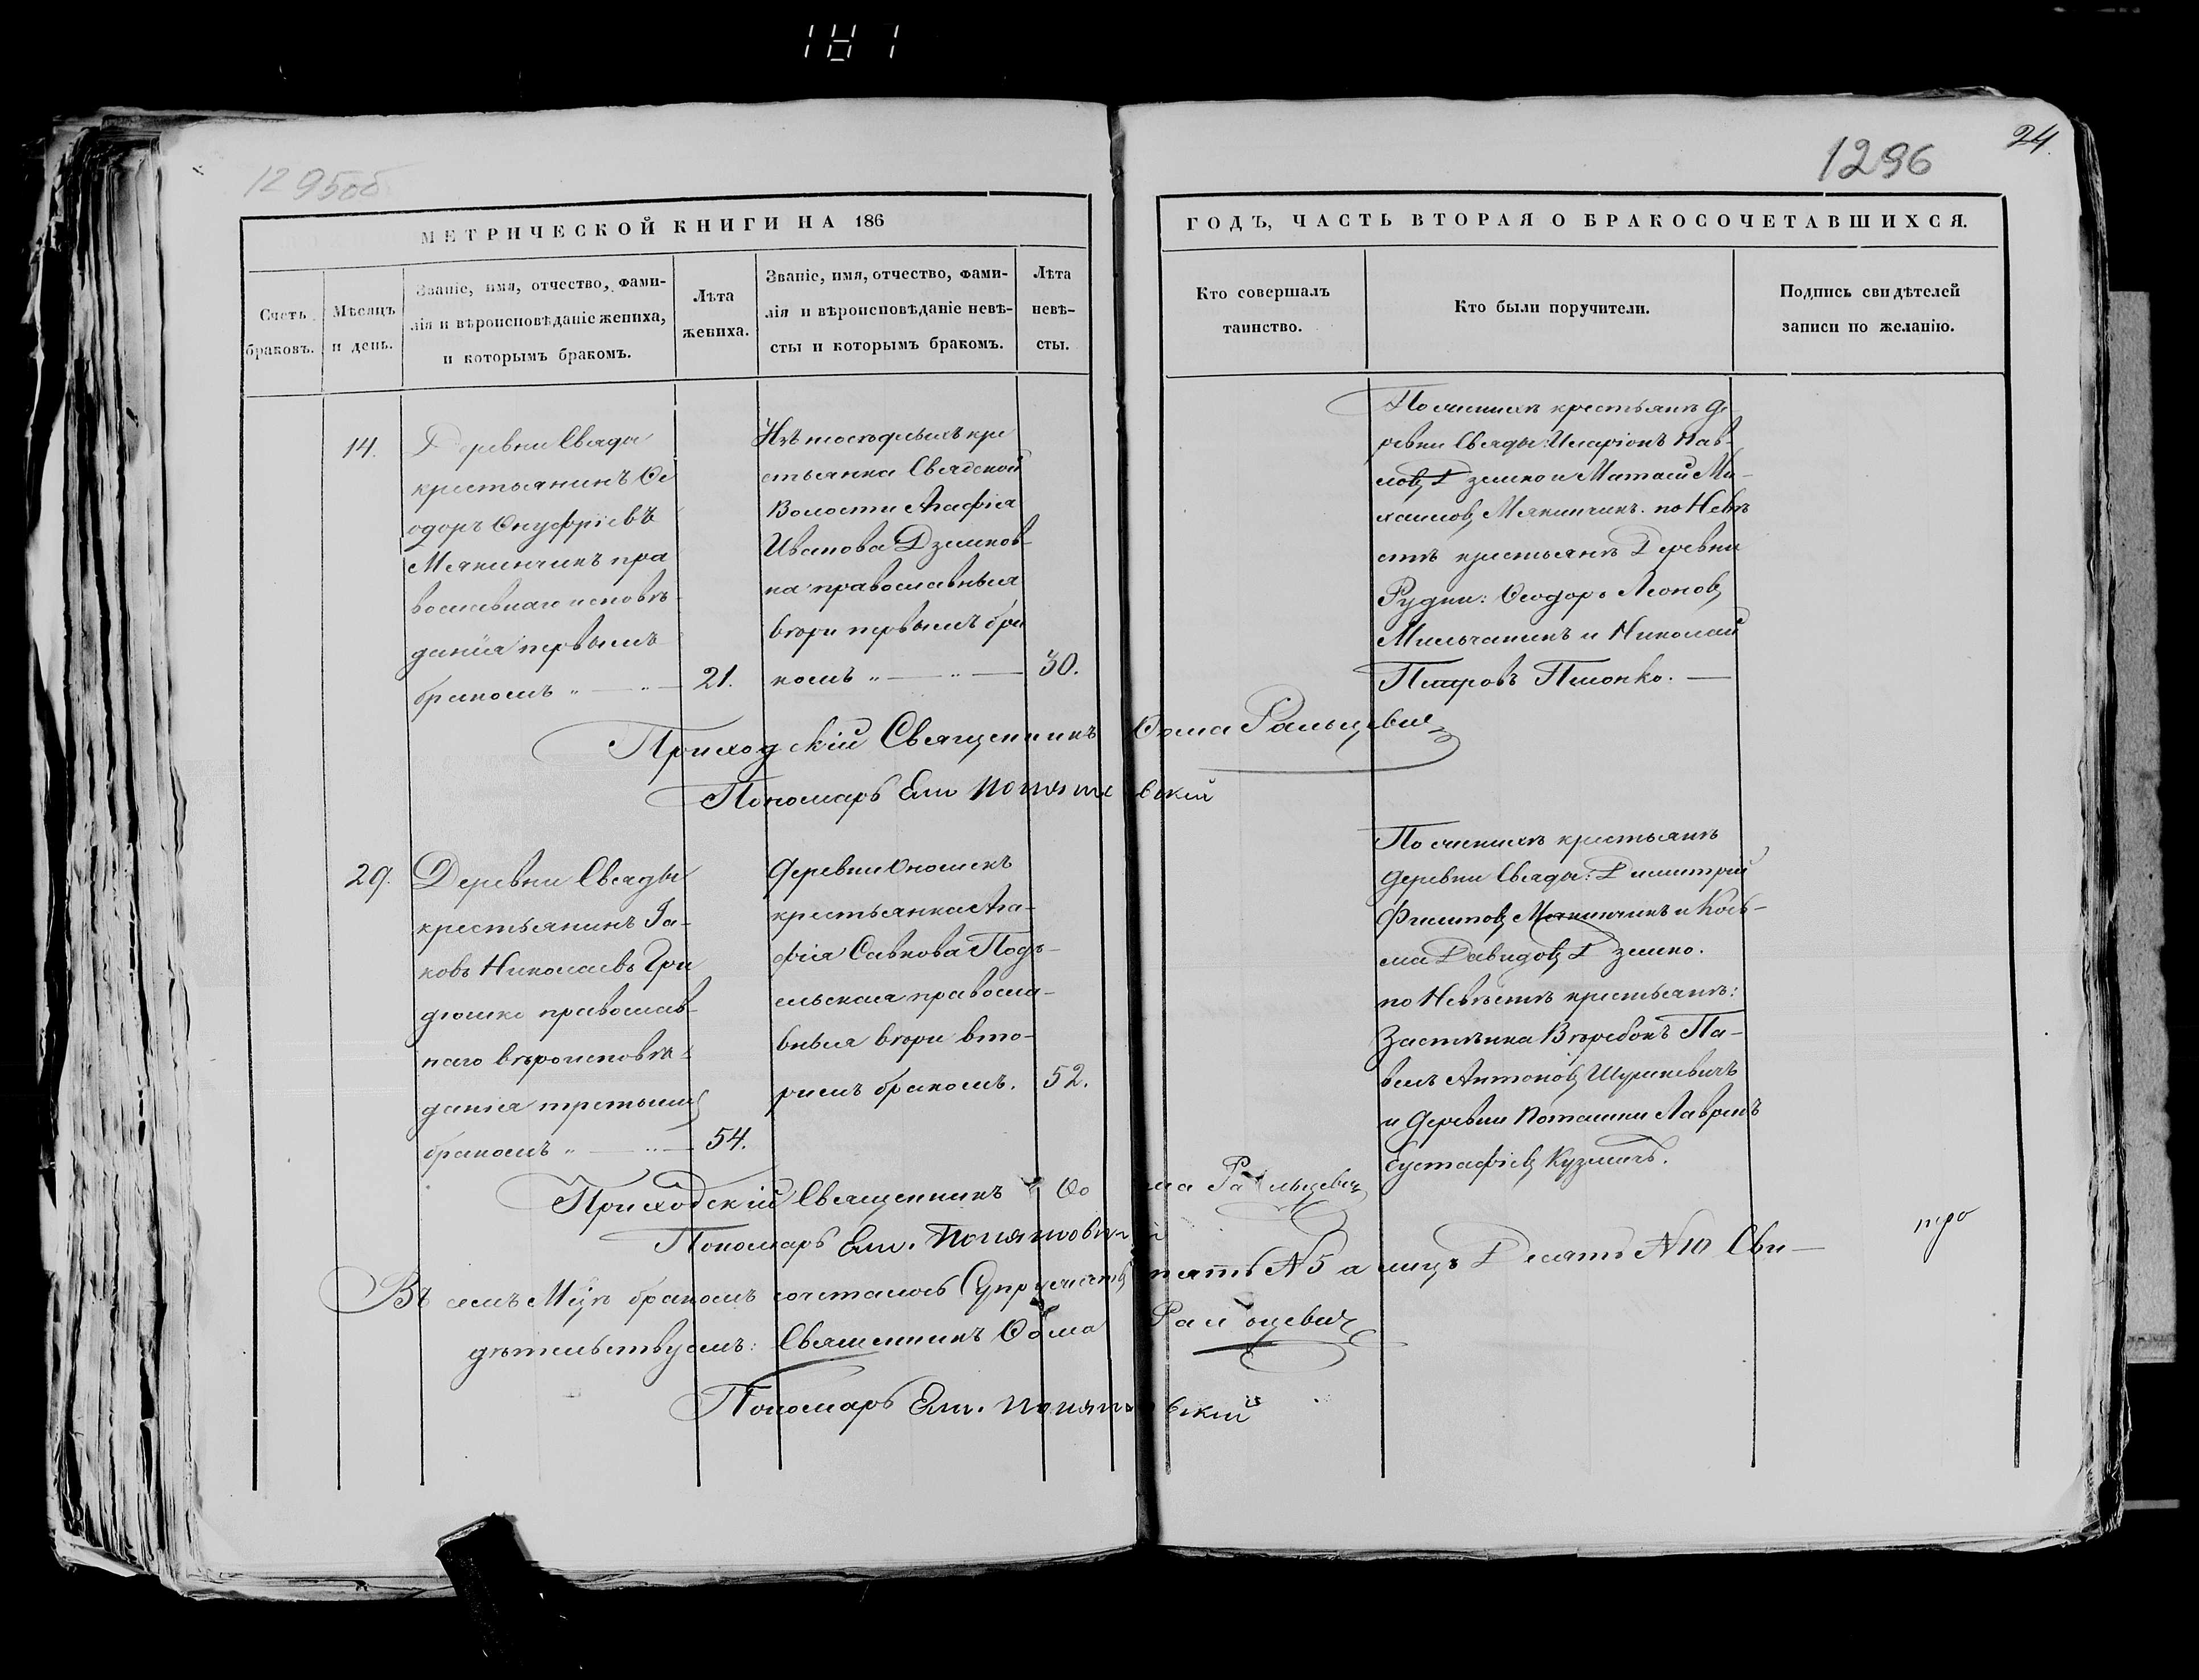 181
1295об
1296
24.
МЕТРИЧЕСКОЙ КНИГИ НА 186
ГОДЪ, ЧАСТЬ ВТОРАЯ О БРАКОСОЧЕТАВШИХСЯ.
Счетъ
браковъ.
Мѣсяцъ
и день.
Званіе, имя, отчество, фами-
лія и вѣроисповѣданіе жениха,
и которымъ бракомъ.
Лѣта
жениха.
Званіе, имя, отчество, фами-
лія и вѣроисповѣданіе невѣ-
сты и которымъ бракомъ.
Лѣта
невѣ-
сты.
Кто совершалъ
таинство.
Кто были поручители.
Подпись свидѣтелей
записи по желанію.
14.
Деревни Свяды
крестьянинъ Ѳе
одоръ Онуфріевъ
Мякинчикъ пра
вославнаго исповѣ
данія первымъ
бракомъ „ — „ — 21.
крестьянка Свядской
Волости Агафія
Иванова Дземков
на православныя
вѣры первымъ бра
комъ „ — „ — 30.
крестьянъ де
ревни Свяды: Иларіонъ Пав-
ловъ Дземко и Матвій Ми-
хаиловъ Мякинчикъ. по Невѣ
стѣ крестьянъ Деревни
Рудни: Ѳеодоръ Леоновъ
Мильчанинъ и Николай
Петровъ Пліонко. —
Приходскій Священникъ Ѳома Ральцевичъ
Пономарь Ем. Понятовскій
29.
Деревни Свяды
крестьянинъ Іа-
ковъ Николаевъ Гри
дюшко православ-
наго вѣроисповѣ-
данія третьимъ
бракомъ „ — „ — 54.
деревни
крестьянка Ага-
фія Савкова Подъ-
ельская правосла-
вныя вѣры вто-
рымъ бракомъ. 52.
крестьянъ
деревни Свяды: Димитрій
Филиповъ Мякинчикъ и Козь-
ма Давидовъ Дземко.
по Невѣстѣ крестьянъ:
Застѣнка Па-
велъ Антоновъ Шуркевичъ
и деревни Поташни Лавренъ
Евстафіевъ Кузмичъ.
Приходскій Священникъ Ѳома Ральцевичъ
Пономарь Ем. Понятовскій
Въ семъ М-цѣ бракомъ сочеталось Супружествъ пять №5 а лицъ Десять №10 Сви-
дѣтельствуемъ: Священникъ Ѳома Ральцевичъ
Пономарь Ем. Понятовскій